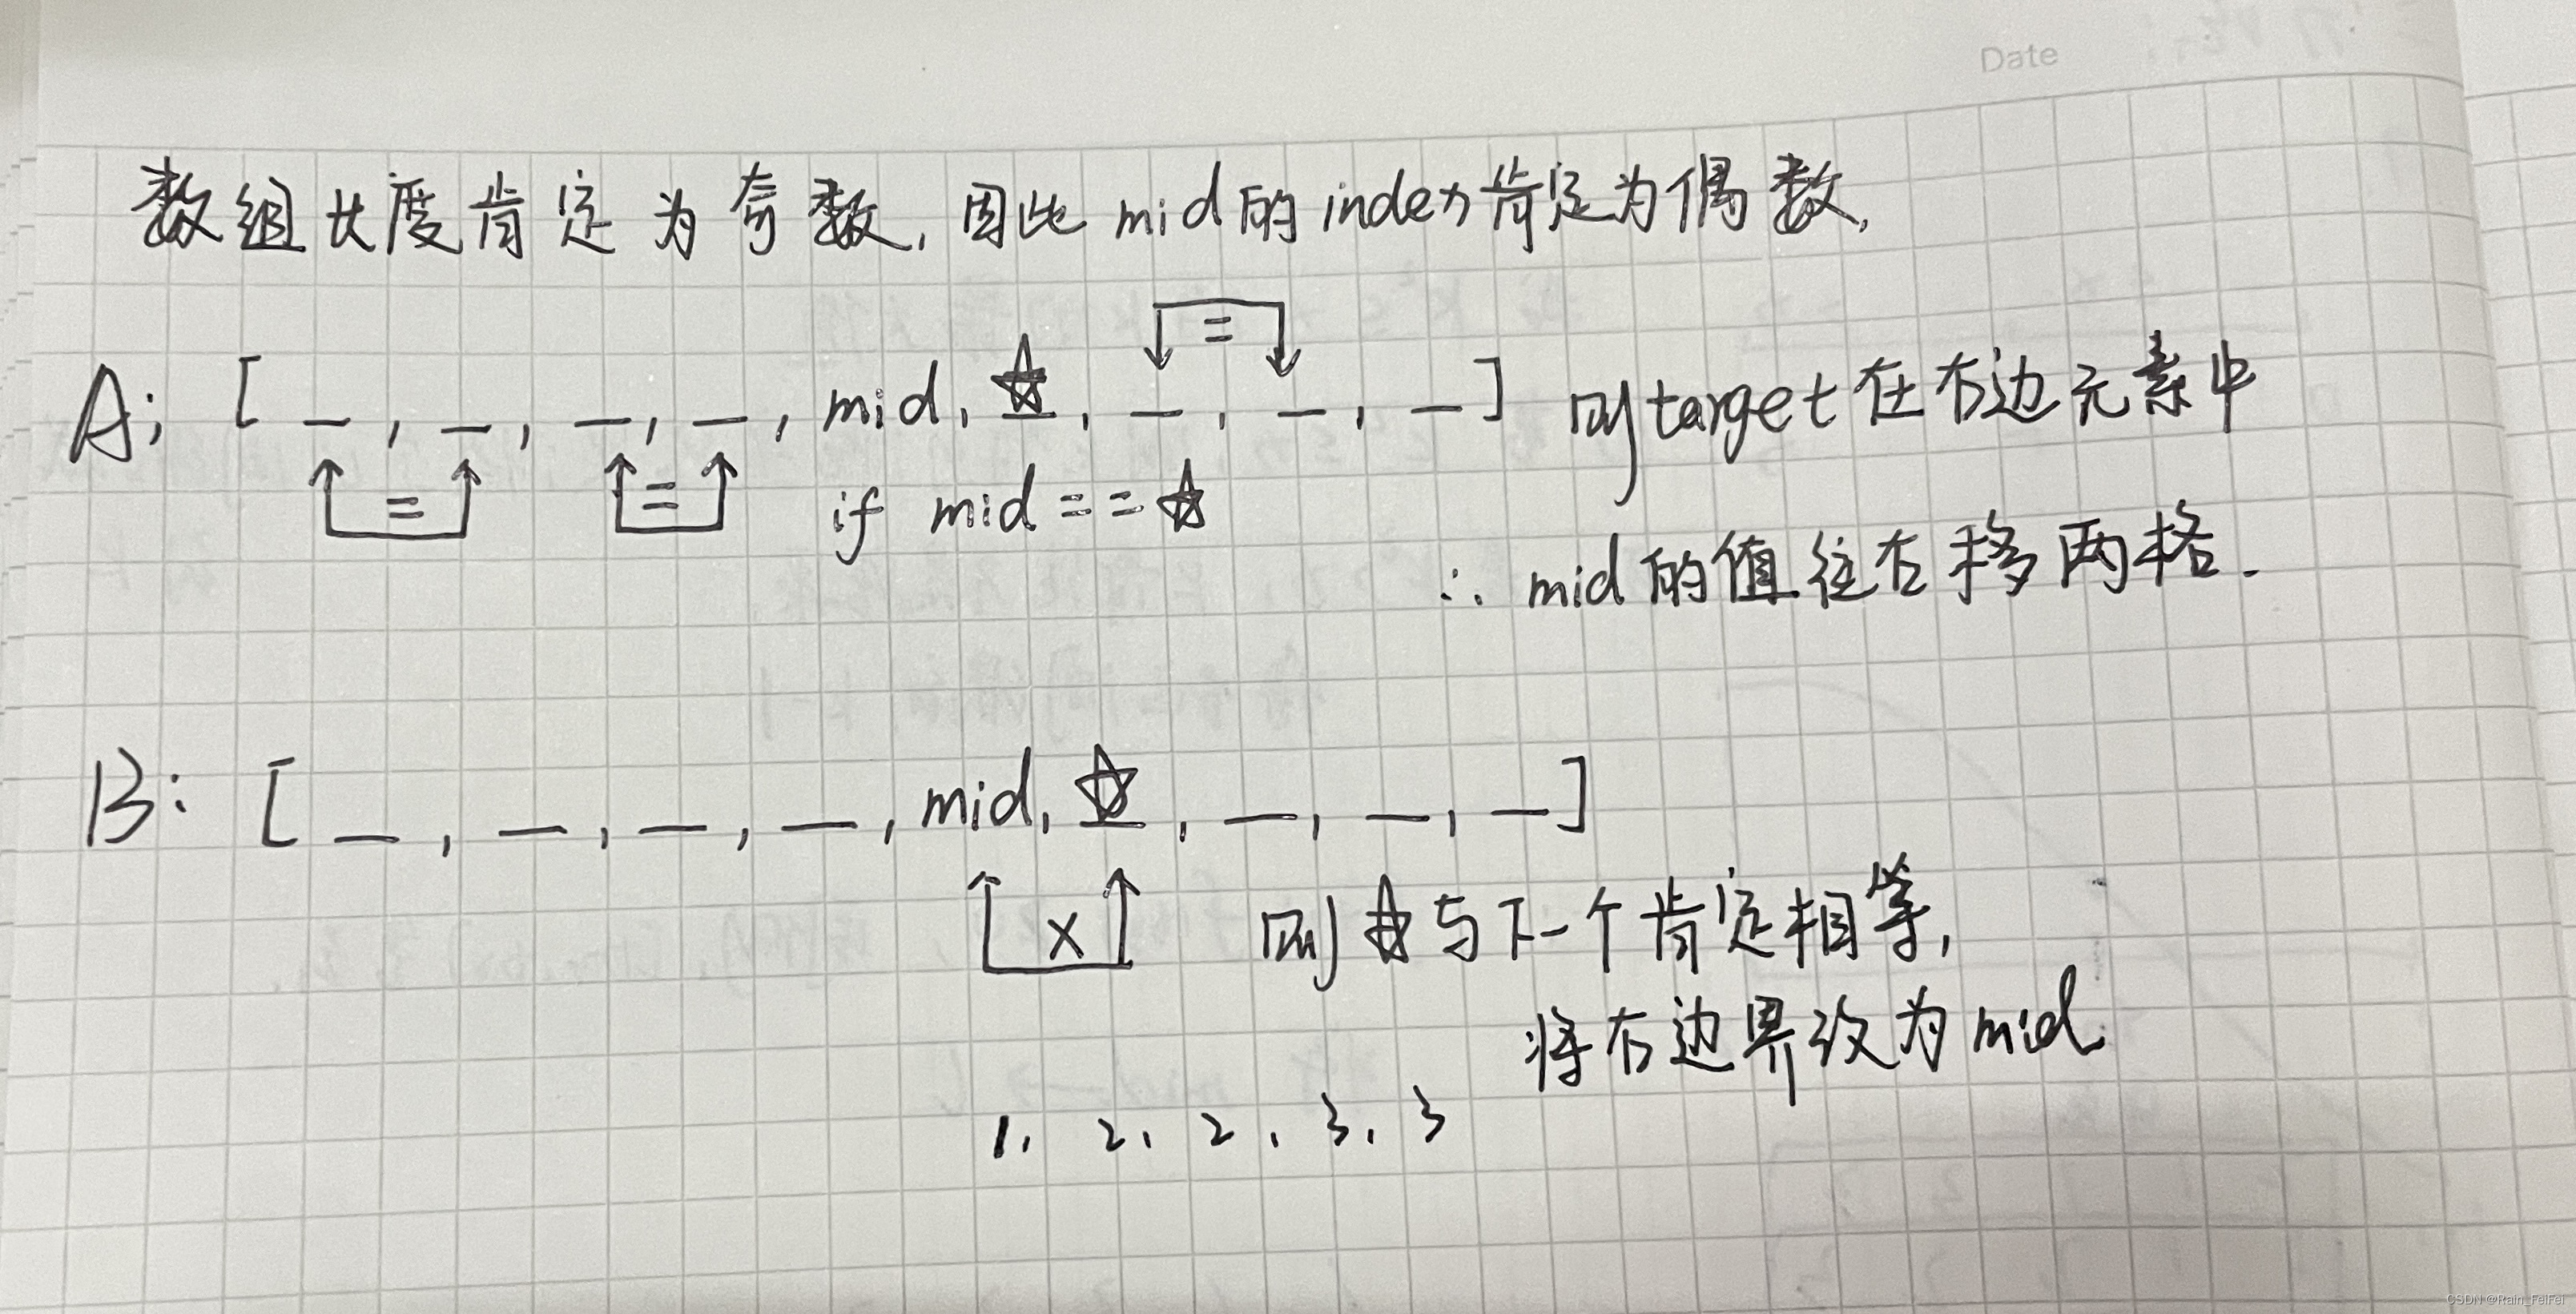 Date
数组长度肯定为奇数,因此mid的index肯定为偶数,
=
A: [ _ , _ , _ , _ , mid, ☆, _ , _ , _ ] 则target在右边元素中
= = if mid==☆
∴ mid的值往右移两格.
B: [ _ , _ , _ , _ , mid, ☆, _ , _ , _ ]
x 则☆与下一个肯定相等,
将右边界改为mid
1, 2, 2, 3, 3
CSDN @Rain_FeiFei